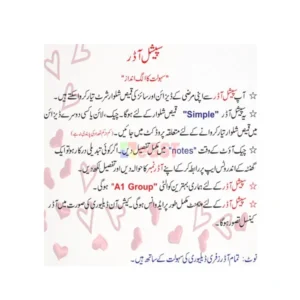 سپیشل آڈر
"سہولت کا الگ انداز"
☆ آپ سپیشل آڈر سے اپنی مرضی کے ڈیزائن اور سائز کی قمیض شلوار شرٹ تیار کروا سکتے ہیں۔
☆ سپیشل آڈر "Simple" قمیض شلوار ہو گی۔ چیک، لائن یا کسی دوسرے ڈیزائن
میں قمیض شلوار تیار کروانے کے لئے متعلقہ پروڈکٹ میں جائیں۔
☆ چیک آوٹ کے وقت "notes" میں مکمل تفصیل دیں۔ اگر کوئی تبدیلی درکار ہو تو ایک
گھنٹہ کے اندر وٹس ایپ پر رابطہ کر کے اپنے آڈر نمبر کا حوالہ دیں اور تفصیل لکھ دیں۔
☆ سپیشل آڈر کے لئے ہماری بہترین کوالٹی "A1 Group" ہو گی۔
☆ سپیشل آڈر کے لئے پیمنٹ مکمل طور پر ایڈوانس ہو گی۔ کیش آن ڈیلیوری کی صورت میں آڈر
کینسل تصور ہو گا۔
نوٹ: تمام آڈرز فری ڈیلیوری کی سہولت کے ساتھ ہیں۔